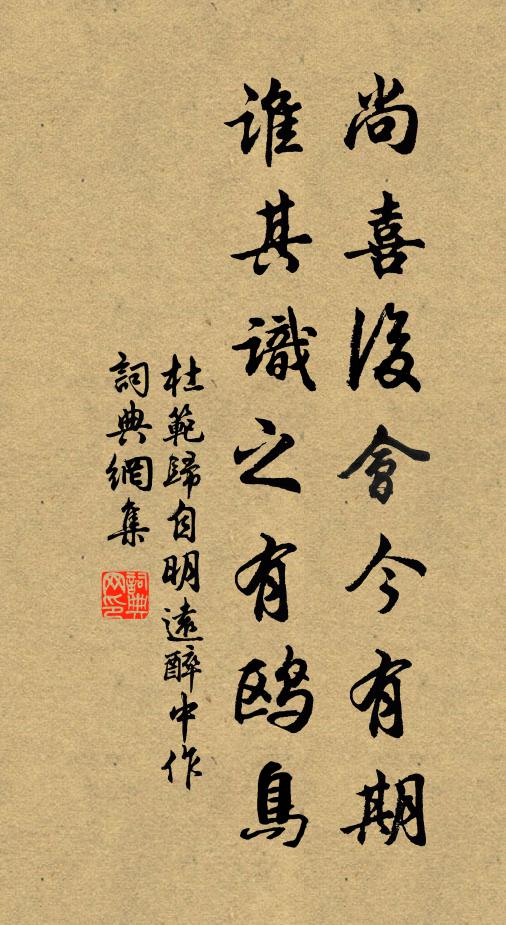 尚喜後會今有期
誰其識之有鷗鳥
杜範歸自明遠醉中作
詞典網集
詞典网印